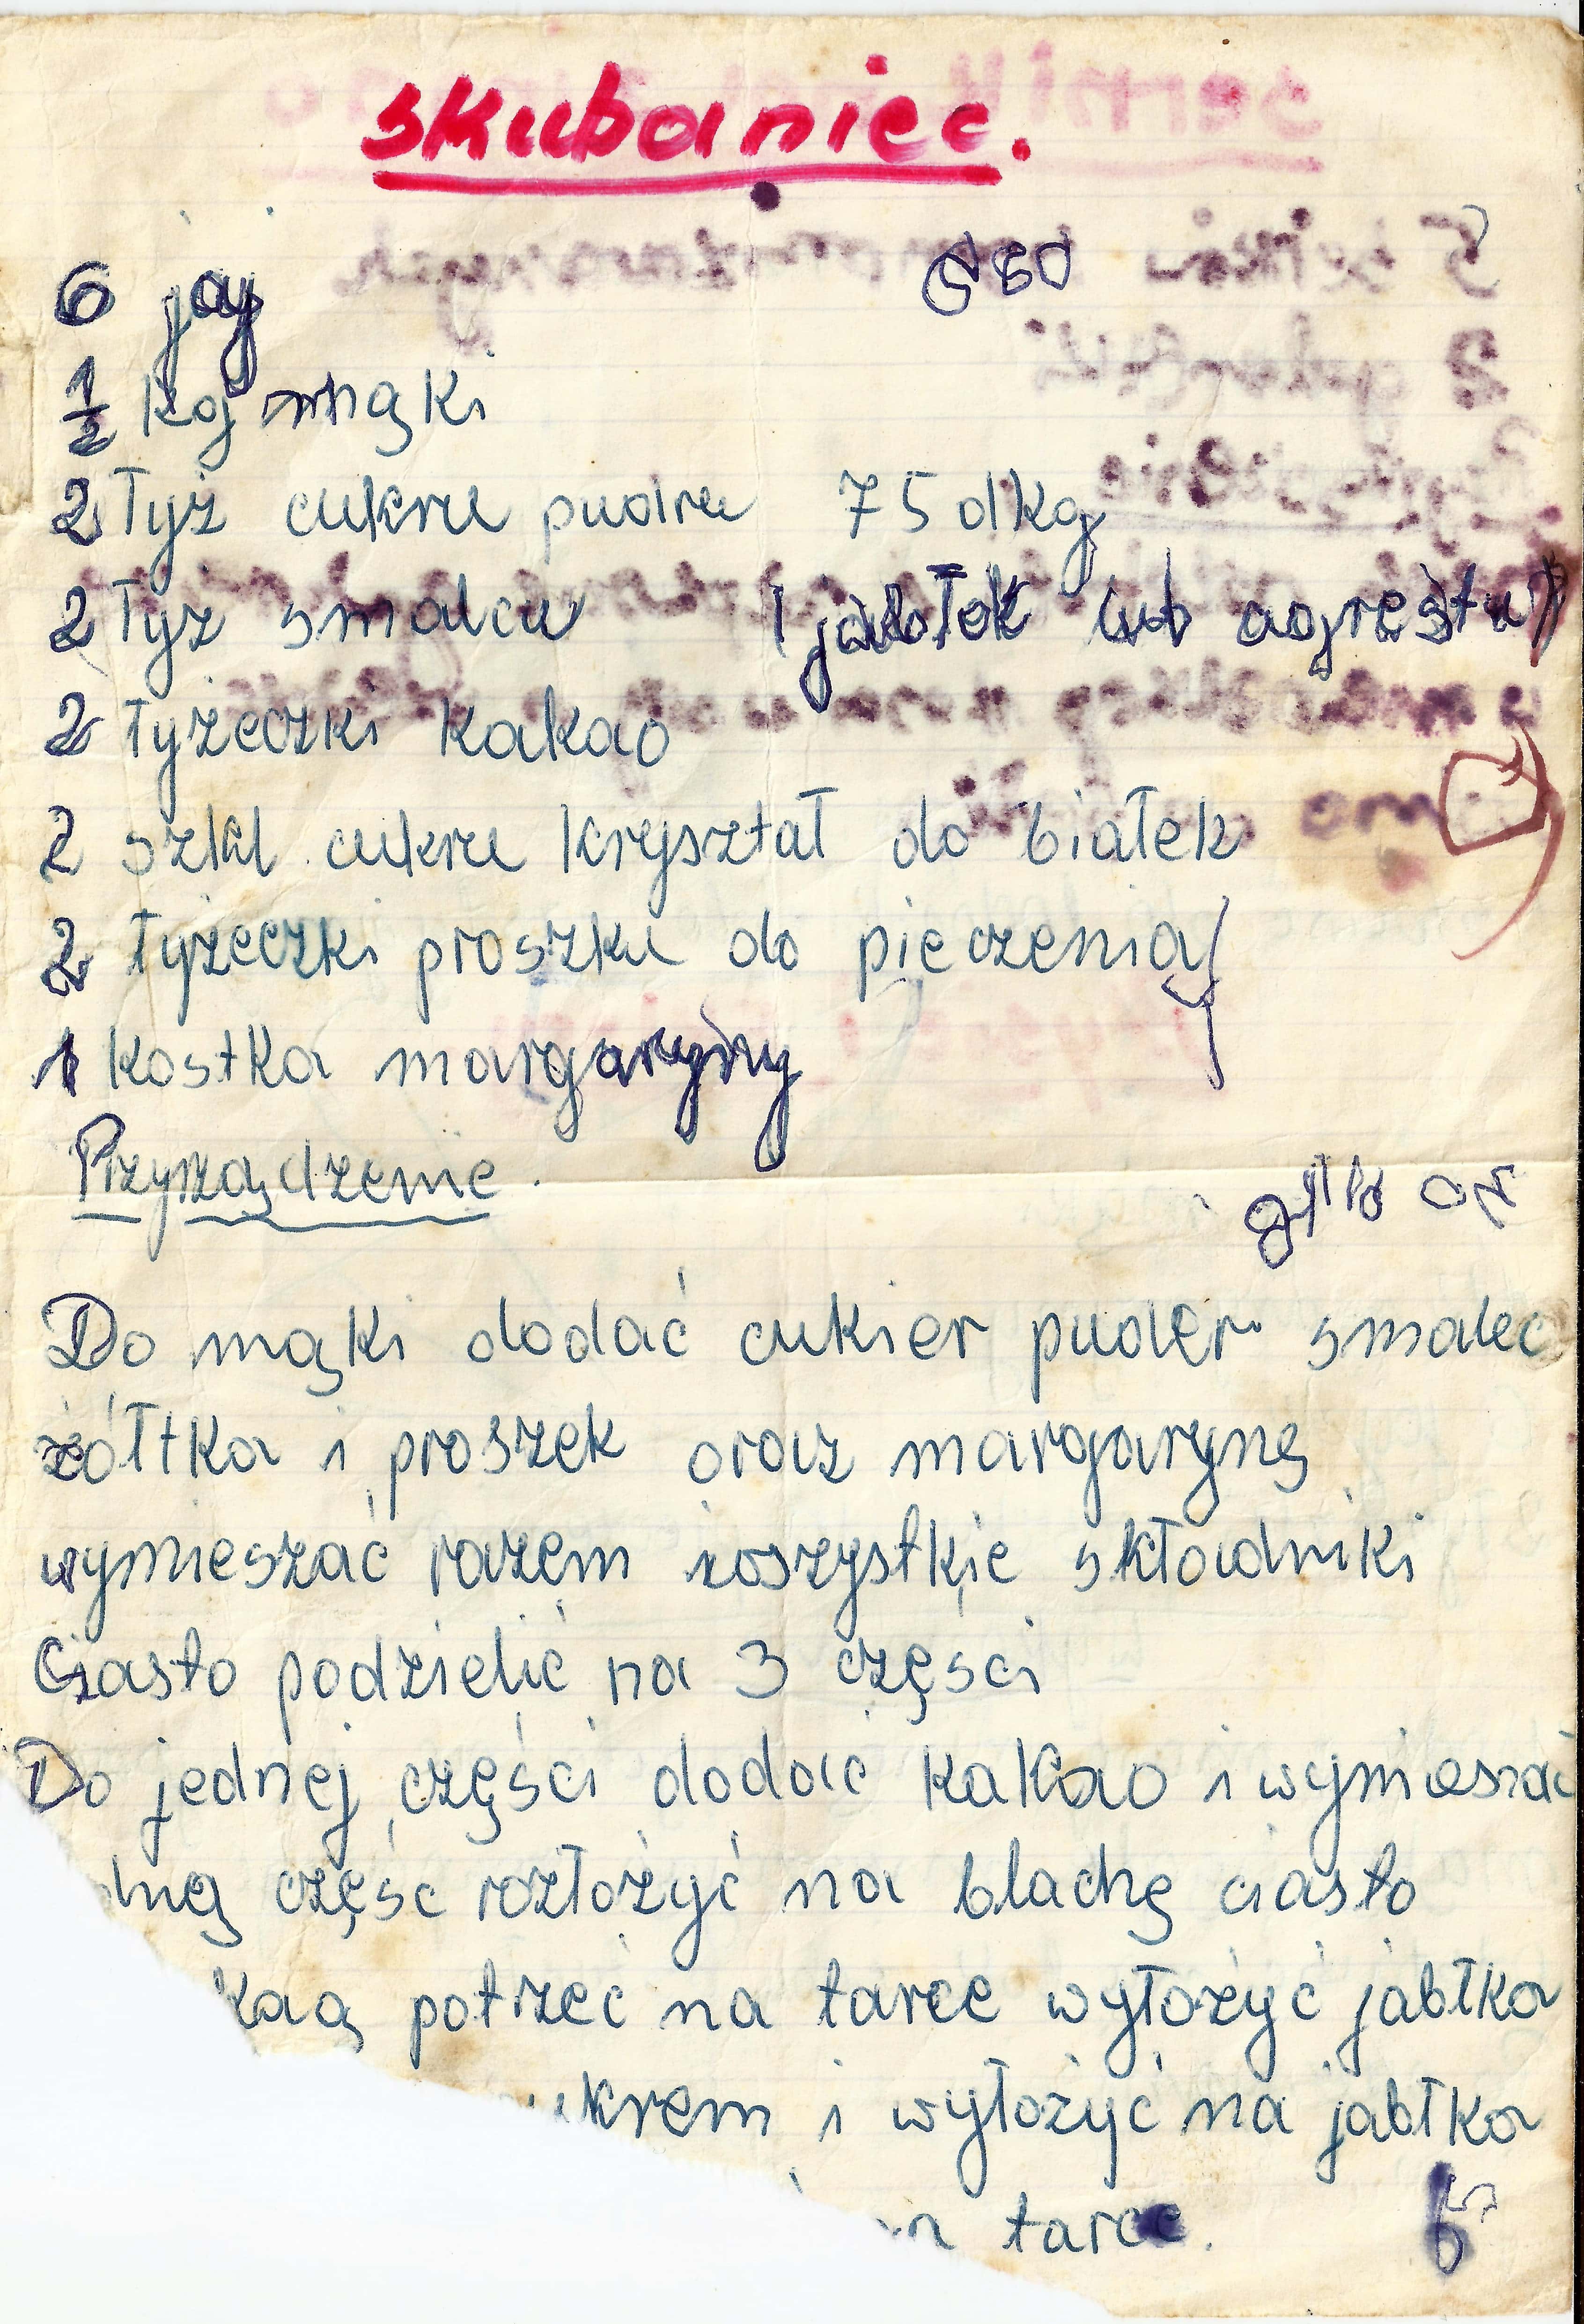 skubaniec.
6 jaj
1/2 kg mąki
2 łyż cukru pudru 75 dkg
2 łyż smalcu (jabłek lub agrestu)
2 łyżeczki kakao
2 szkl. cukru kryształ do białek
2 łyżeczki proszku do pieczenia
1 kostka margaryny
Przyrządzenie.
Do mąki dodać cukier puder smalec
żółtka i proszek oraz margarynę
wymieszać razem wszystkie składniki
Ciasto podzielić na 3 części
Do jednej części dodać kakao i wymieszać
dną część rozłożyć na blachę ciasto
kaą potrzeć na tarce wyłożyć jabłka
ukrem i wyłożyć na jabłka
tarce.